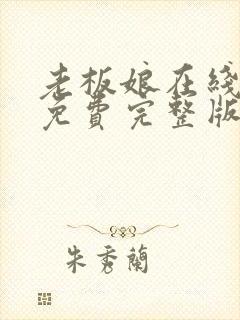 老板娘在綫
免費完整版
朱秀蘭